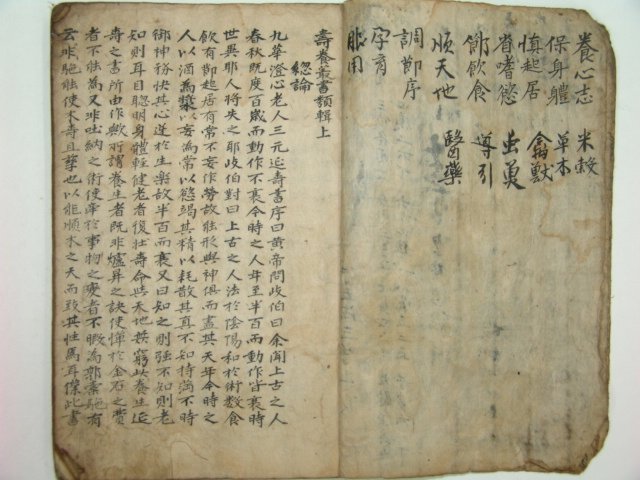 養心志 米穀
保身軆 草本
愼起居 禽獸
省嗜慾 虫魚
節飮食 導引
順天地 醫藥
調節序
字育
服用
壽養叢書類輯上
緫論
九華澄心老人三元延壽書序曰黃帝問歧伯曰余聞上古之人
春秋旣度百歲而動作不衰今時之人年至半百而動作皆衰時
世異耶人將失之耶歧伯對曰上古之人法於陰陽和於術數食
飮有節起居有常不妄作勞故能形與神俱而盡其天年今時之
人以酒爲漿以妄爲常以慾竭其精以耗散其眞不知持滿不時
御神務快其心逆於生樂故半百而衰又曰知之則强不知則老
知則耳目聰明身體輕健老者復壯壽命與天地無窮此養生延
壽之書所由作歟所謂養生者旣非爐昇之訣使憚於金石之費
者不能爲又非吐納之術使牽於事物之變者不暇爲郭橐駝有
云非駝能使木壽且孶也以能順木之天而致其性焉耳僕此書